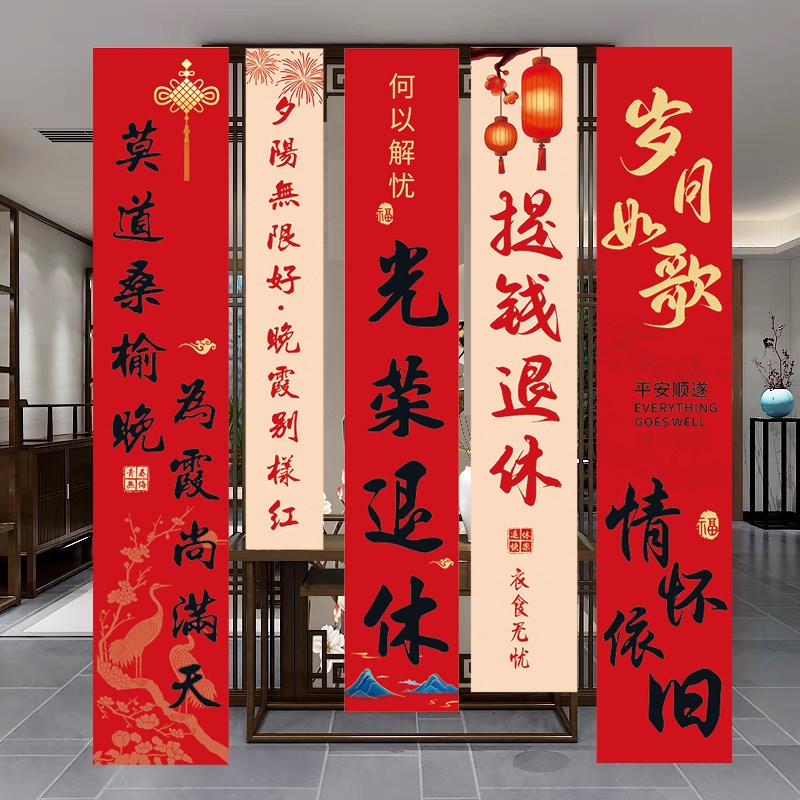 莫道桑榆晚
為霞尚滿天
夕陽無限好·晚霞别樣红
何以解忧
福
光荣退休
提钱退休
退休
快樂
衣食无忧
岁月
如歌
平安顺遂
EVERYTHING
GOES WELL
福
情怀
依旧